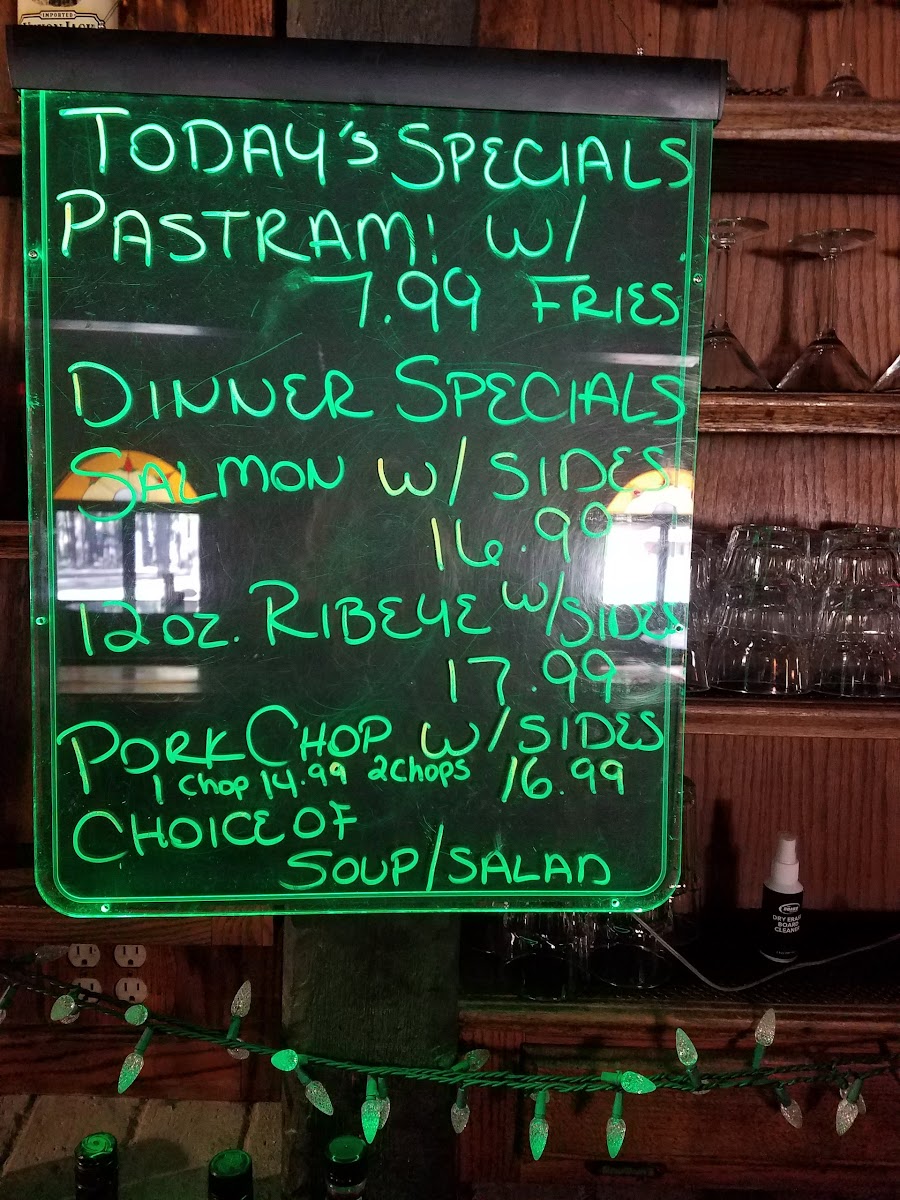 IMPORTED
YUKON JACK
TODAY'S SPECIALS
PASTRAMI W/
7.99 FRIES
DINNER SPECIALS
SALMON W/SIDES
16.99
12 OZ. RIBEYE W/SIDES
17.99
PORK CHOP W/SIDES
1 Chop 14.99 2 Chops 16.99
CHOICE OF
SOUP/SALAD
DRY ERASE
BOARD
CLEANER